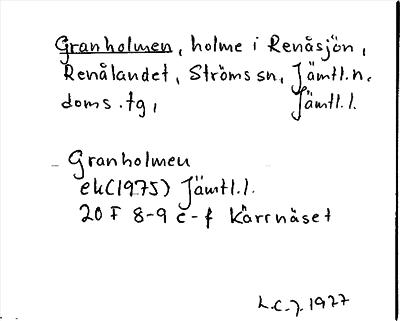 Granholmen, holme i Renåsjön,
Renålandet, Ströms sn, Jämtl.n.
doms.tg, Jämtl.l.
- Granholmen
ek(1975) Jämtl.l.
20 F 8-9 c-f Kärrnäset
L.C.J. 1977